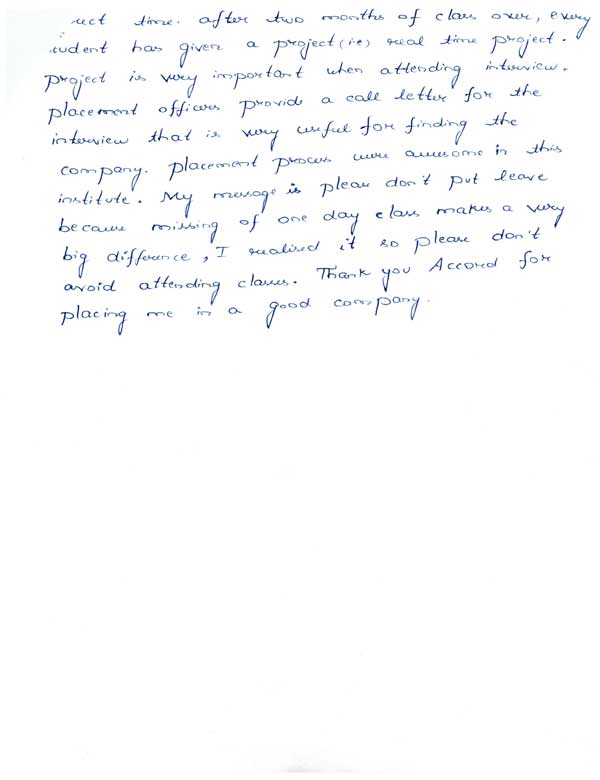 time. after two months of class over, every
tudent has given a project (i.e) real time project.
project is very important when attending interview.
placement officers provide a call letter for the
interview that is very useful for finding the
company. placement process were awesome in this
institute. My message is please don't put leave
because missing of one day class makes a very
big difference, I realised it so please don't
avoid attending classes. Thank you Accord for
placing me in a good company.